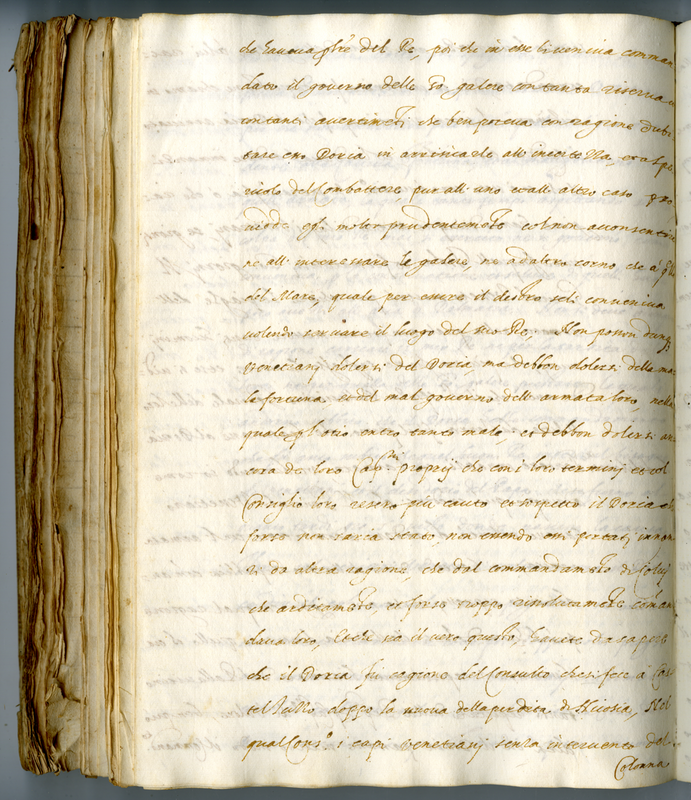 che haveva fuor del Re, poi che in esse li veniva comman
dato il governo delle 50 galere con tanta riserva, et
con tanti avertimeti che ben poteva con ragione dubi
tare esso Doria in arrisicarle all' incertezza, et al pe
ricolo del Combattere, pur all' uno et all' altro caso pro
vidde egli molto prudentemete col non acconsentire
ne all' interessare le galere, ne ad altro corno, che a q.llo
del Mare, quale per essere il destro seli conveniva
volendo servare il luogo del suo Re, Non posson dunq3
Venetianj dolersi del Doria, ma debbon dolersi della ma
la fortuna, et del mal governo dell' armata loro, nella
quale l' otio entrò tanto male, et debbon dolersi an
cora de loro Cap.ni proprij che con i loro terminj et col
Consiglio loro resero più cauto et sospetto il Doria che
forse non saria stato, non essendo essi portati innan
zi da altra ragione, che dal commandameto di Colui
che arditamete, et forse troppo risolutamete coman
dava loro, Et che sia il vero questo, havete da sapere
che il Doria fu cagione del Consulto che si fece à Cas
tel Ruzzo doppo la nuova della perdita di Nicosia, Nel
qual Cons.o i capi Venetianj senza intervento del
Colonna